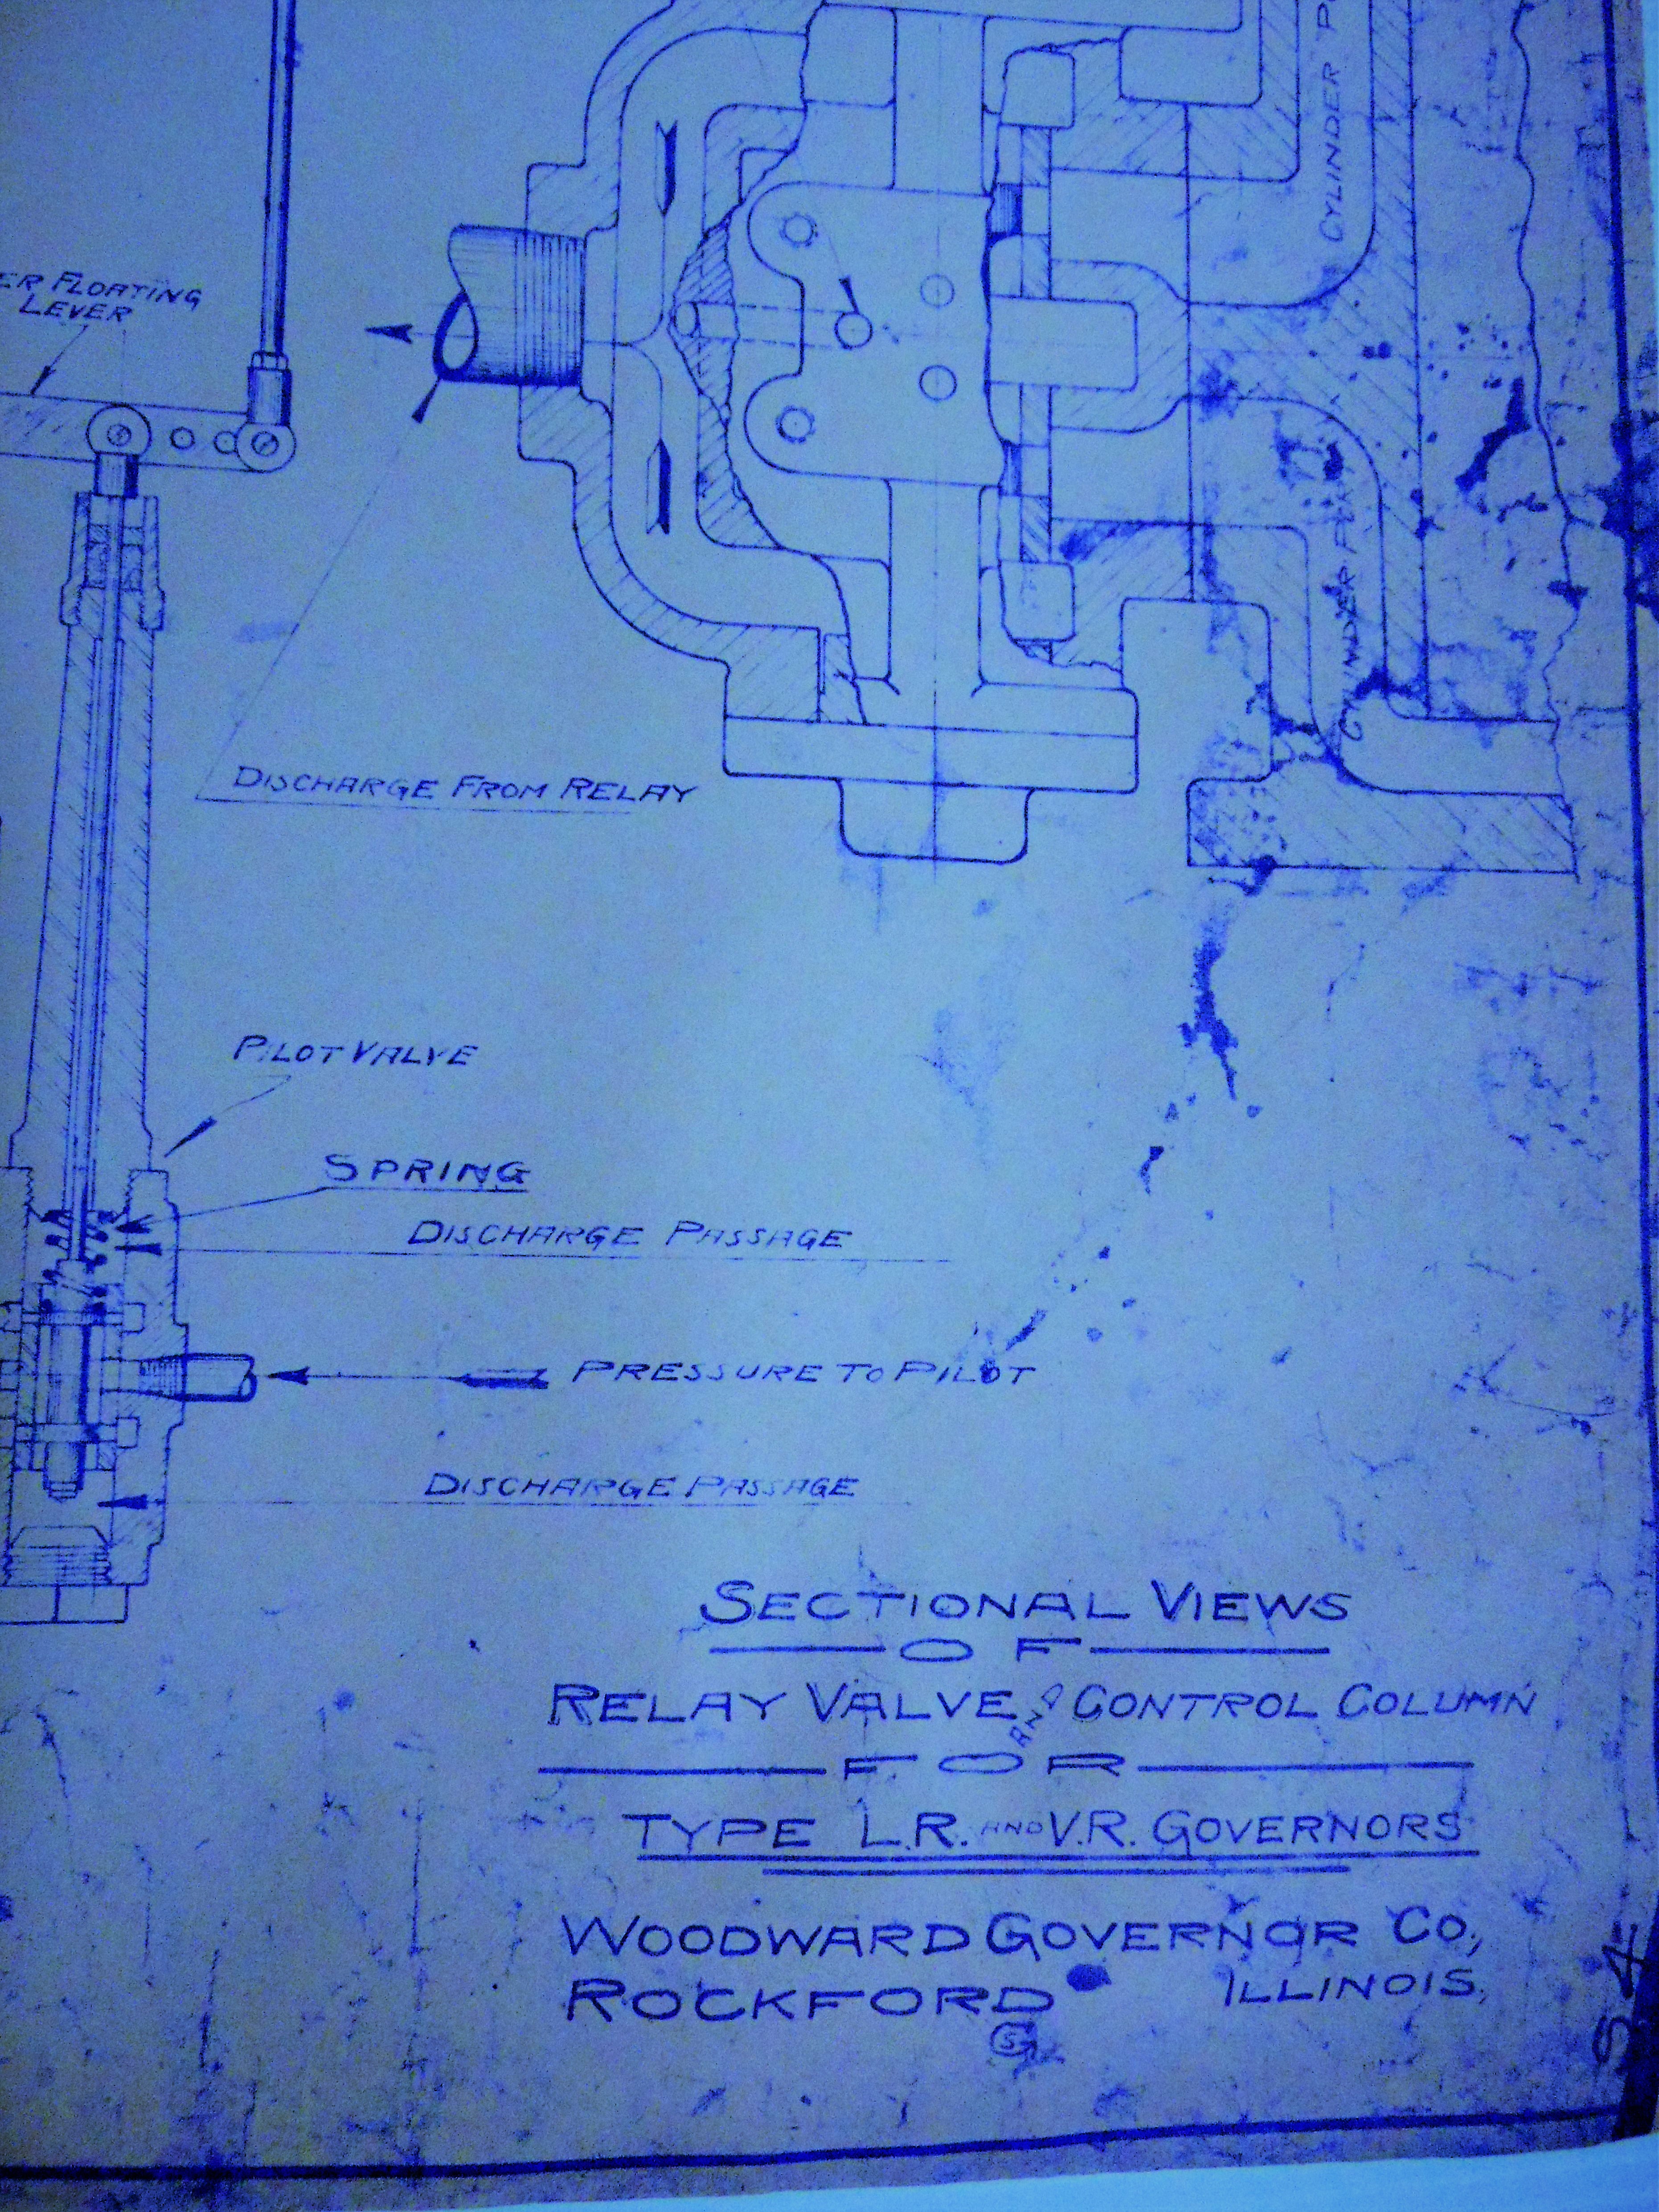 CYLINDER
ER FLOATING
LEVER
CYLINDER PORT
DISCHARGE FROM RELAY
PILOT VALVE
SPRING
DISCHARGE PASSAGE
PRESSURE TO PILOT
DISCHARGE PASSAGE
SECTIONAL VIEWS
OF
RELAY VALVE AND CONTROL COLUMN
FOR
TYPE L.R. AND V.R. GOVERNORS
WOODWARD GOVERNOR CO.,
ROCKFORD ILLINOIS.